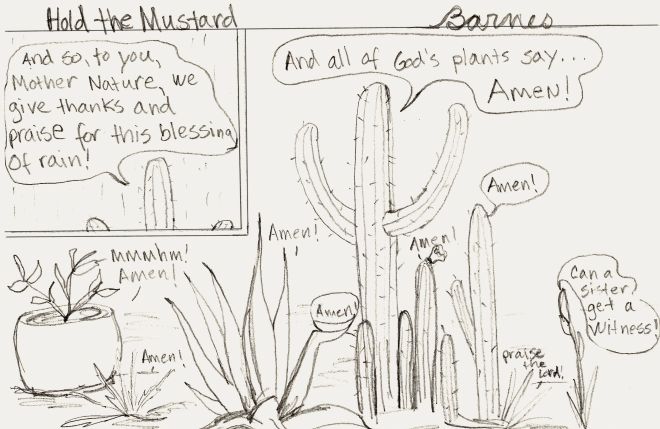 Hold the Mustard
Barnes
And so, to you,
Mother Nature, we
give thanks and
praise for this blessing
of rain!
And all of God's plants say...
Amen!
Amen!
Amen!
Amen!
mmmhm!
Amen!
Amen!
Amen!
praise
the
Lord!
Can a
sister
get a
witness!